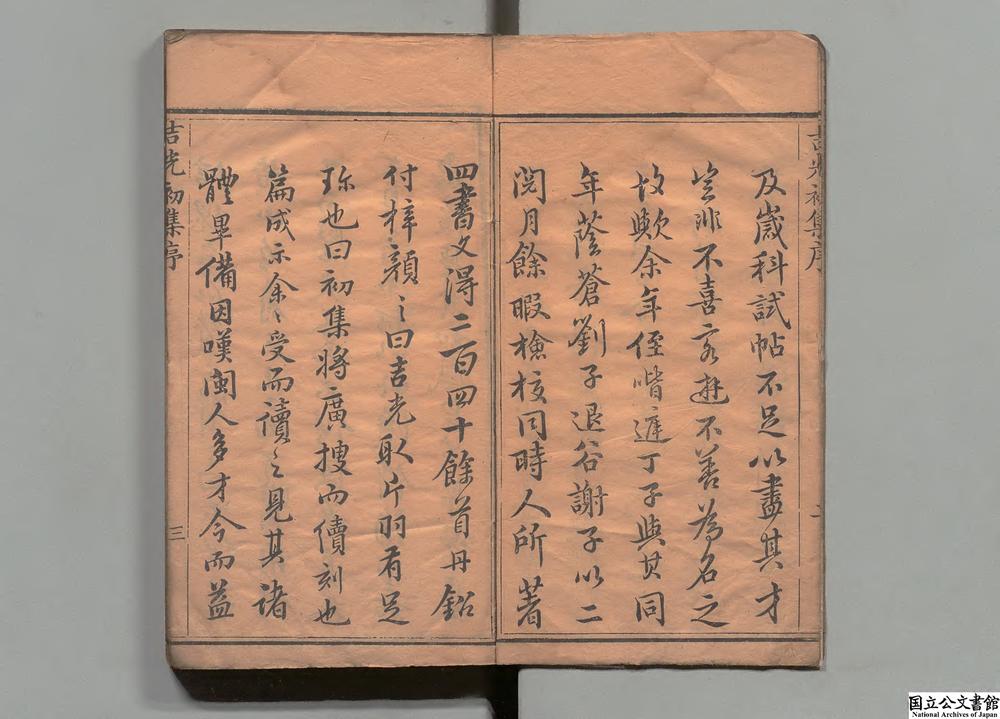 吉光初集序
二
及歲科試帖不足以盡其才
豈非不喜交遊不善為名之
故歟余年侄喈遲丁子與其同
年蔭蒼劉子退谷謝子以二
閱月餘暇檢校同時人所著
四書文得二百四十餘首丹鉛
付梓顏之曰吉光取片羽有足
珍也曰初集將廣搜而續刻也
篇成示余〻受而讀之見其諸
體畢備因嘆閩人多才今而益
吉光初集序
三
国立公文書館
National Archives of Japan